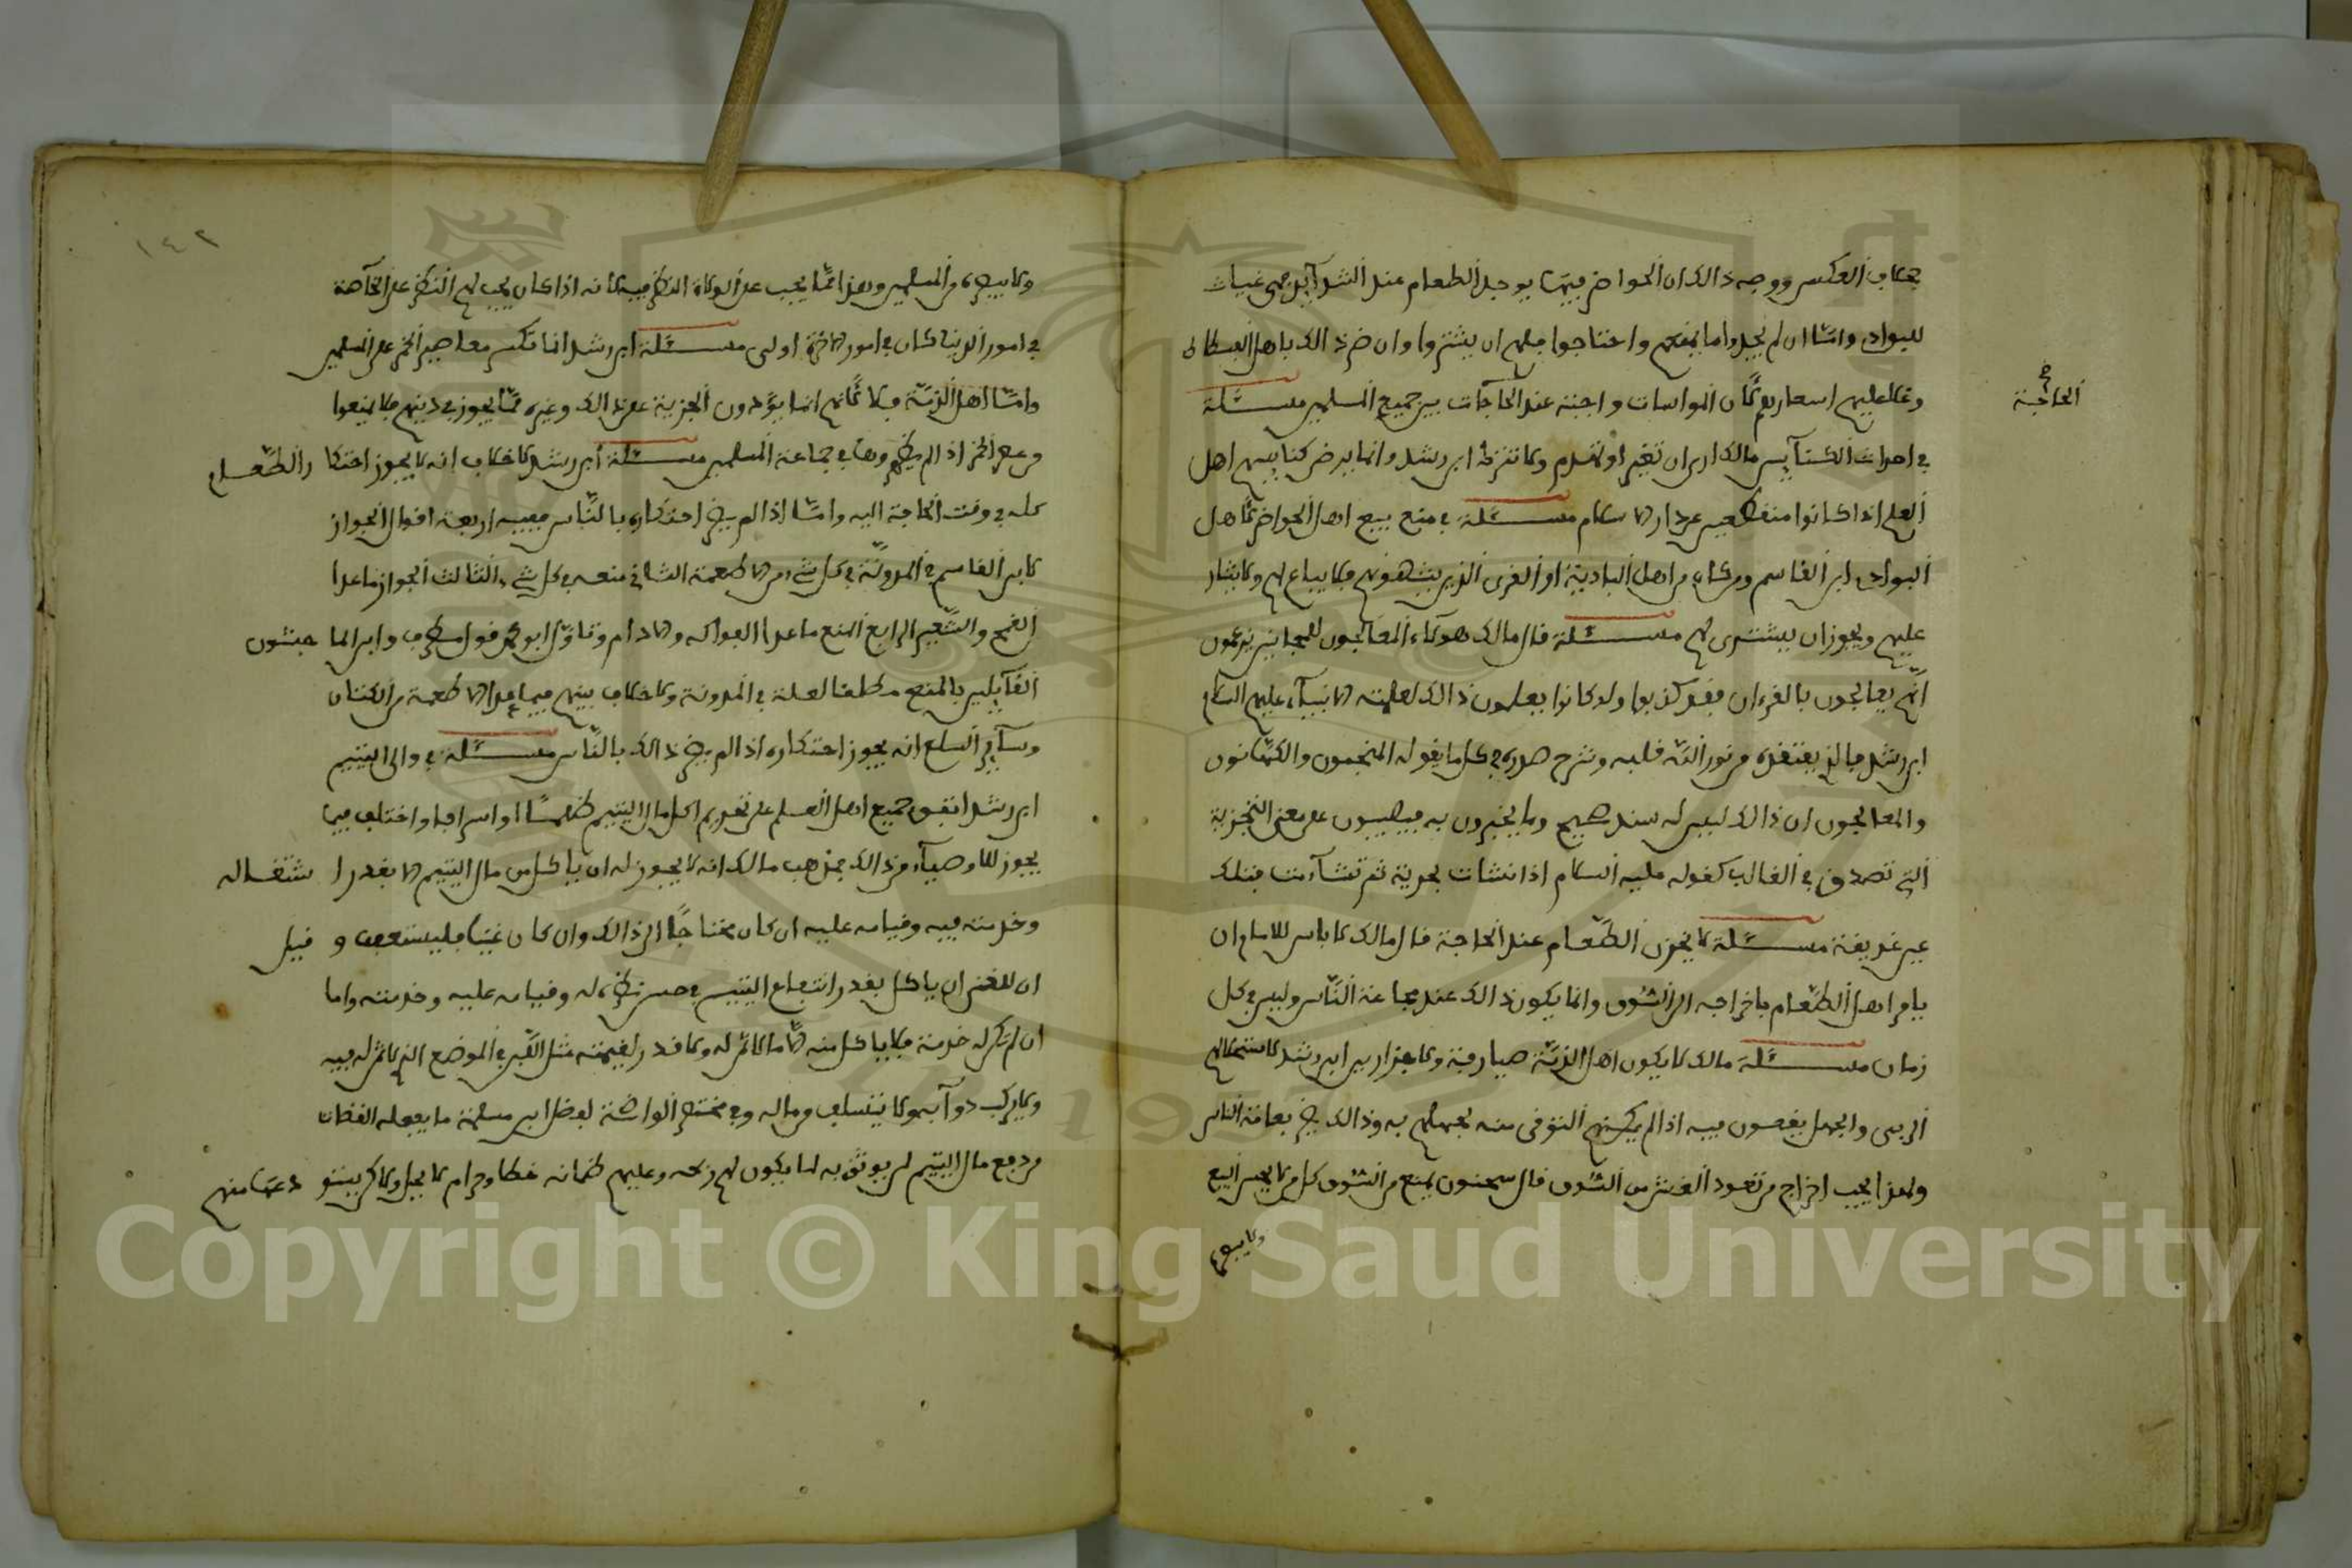 بخلاف العكس ووجه ذالك ان الحواضر فيها يوجد الطعام عند الشدآيد فهي غياث
للبوادي واما ان لم يجدوا ما يمنعهم واحتاجوا فلهم ان يشتروا وان ضر ذالك باهل الفسطاط
وغلا عليهم اسعارهم لأن المواسات واجبة عند الحاجات بين جميع المسلمين مسئلة
الحاجة
في احداث الكنآيس مالك ارى ان تغير او تهدم ولا تترك ابن رشد وانما يرض كنآيسهم اهل
العلم اذا كانوا منقطعين عن دار الاسلام مسئلة في منع بيع اهل الحواضر لأهل
البوادي ابن القاسم ومن كان من اهل البادية او القرى الذين يشبهونهم فلا يباع لهم ولا يشار
عليهم ويجوز ان يشترى لهم مسئلة قال مالك هؤلاء المعالجون للمجانين يزعمون
انهم يعالجون بالقرءان فقد كذبوا ولو كانوا يعلمون ذالك لعلمته الانبيآء عليهم السلام
ابن رشد فالذي يعتقده من نور الله قلبه وشرح صدره في كل ما يقوله المنجمون والكهانون
والمعالجون ان ذالك ليس له سند صحيح وما يخبرون به فيصيبون على معنى التجربة
التي تصدق في الغالب كقوله عليه السلام اذا نشات بحرية ثم تشآءمت فتلك
عين غديقة مسئلة لا يخزن الطعام عند الحاجة قال مالك لا باس للامام ان
يامر اهل الطعام باخراجه الى السوق وانما يكون ذالك عند مجاعة الناس وليس في كل
زمان مسئلة مالك لا يكون اهل الذمة صيارفة ولا جزارين ابن رشد لاستحلالهم
الربى والجهل يغصون فيه اذا لم يمكنهم التوفى منه لجهلهم به وذالك يضر بعامة الناس
ولهذا يجب اخراج من تعود الغش من السوق قال سحنون يمنع من السوق كل من لا يحسن البيع
ولا يبصره
١٤٢
ولا يبصره من المسلمين وهذا مما يجب على الولاة النظر فيه لانه اذا كان يجب لهم النظر على الخآصة
في امور الدنيا كان في امور الاخرة اولى مسئلة ابن رشد انما تكسر معاصير الخمر على المسلمين
واما اهل الذمة فلا لأنهم انما يؤدون الجزية على ذالك وغيره مما يجوز في دينهم فلا يمنعوا
من عصر الخمر اذ لم يظهروها في جماعة المسلمين مسئلة ابن رشد لا خلاف انه لا يجوز احتكار الطعام
كله في وقت الحاجة اليه واما اذا لم يضر احتكاره بالناس ففيه اربعة اقوال الجواز
لابن القاسم في المدونة في كل شيء من الاطعمة الثاني منعه في كل شيء الثالث الجواز ما عدا
القمح والشعير الرابع المنع ما عدا الفواكه والادام وتاول ابو محمد قول مطرف وابن الماجشون
القآيلين بالمنع مطلقا لعلة في المدونة ولا خلاف بينهم فيما عدا الاطعمة من الكتان
وسآير السلع انه يجوز احتكاره اذا لم يضر ذالك بالناس مسئلة في والى اليتيم
ابن رشد اتفق جميع اهل العلم على تحريم اكل مال اليتيم ظلمًا او اسرافا واختلف فيما
يجوز للاوصيآء من ذالك فمذهب مالك انه لا يجوز له ان ياكل من مال اليتيم الا بقدر اشتغاله
وخدمته فيه وقيامه عليه ان كان محتاجًا الى ذالك وان كان غنيا فليستعفف وقيل
ان للغني ان ياكل بقدر انتفاع اليتيم في حسن نظره له وقيامه عليه وخدمته واما
ان لم تكن له خدمة فلا ياكل منه الا ما لا ثمن له ولا قدر لقيمته مثل اللبن في الموضع الذي لا ثمن له فيه
ولا يركب دوآبه ولا يتسلف من ماله وفي مختصر الواضحة لفضل ابن مسلمة ما يفعله القضات
من دفع مال اليتيم لمن يوثق به لما يكون لهم ربحه وعليهم ضمانه خطا وحرام لا يجل ولاكن يبتغو دعها منهم